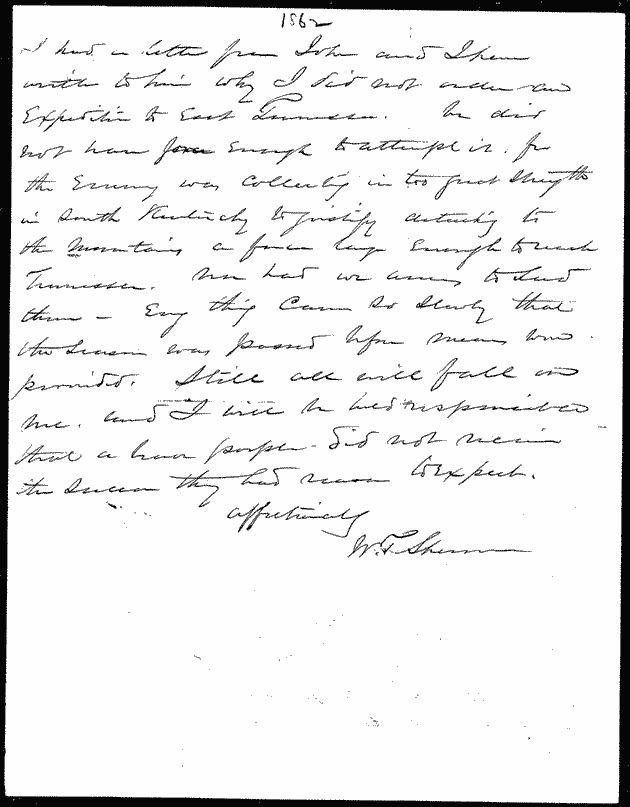 1862
I had a letter from John and I have
written to him why I did not order an
Expedition to East Tennessee. We did
not have force Enough to attempt it. for
the Enemy was Collecting in too great Strength
in South Kentucky to justify detaching to
the Mountains a force large Enough to reach
Tennessee. Nor had we arms to Send
them — Every thing Came so slowly that
the Season was passed before means were
provided. Still all will fall on
me. and I will be held responsible
that a brave people did not receive
the success they had reason to Expect.
affectionately
W. T. Sherman